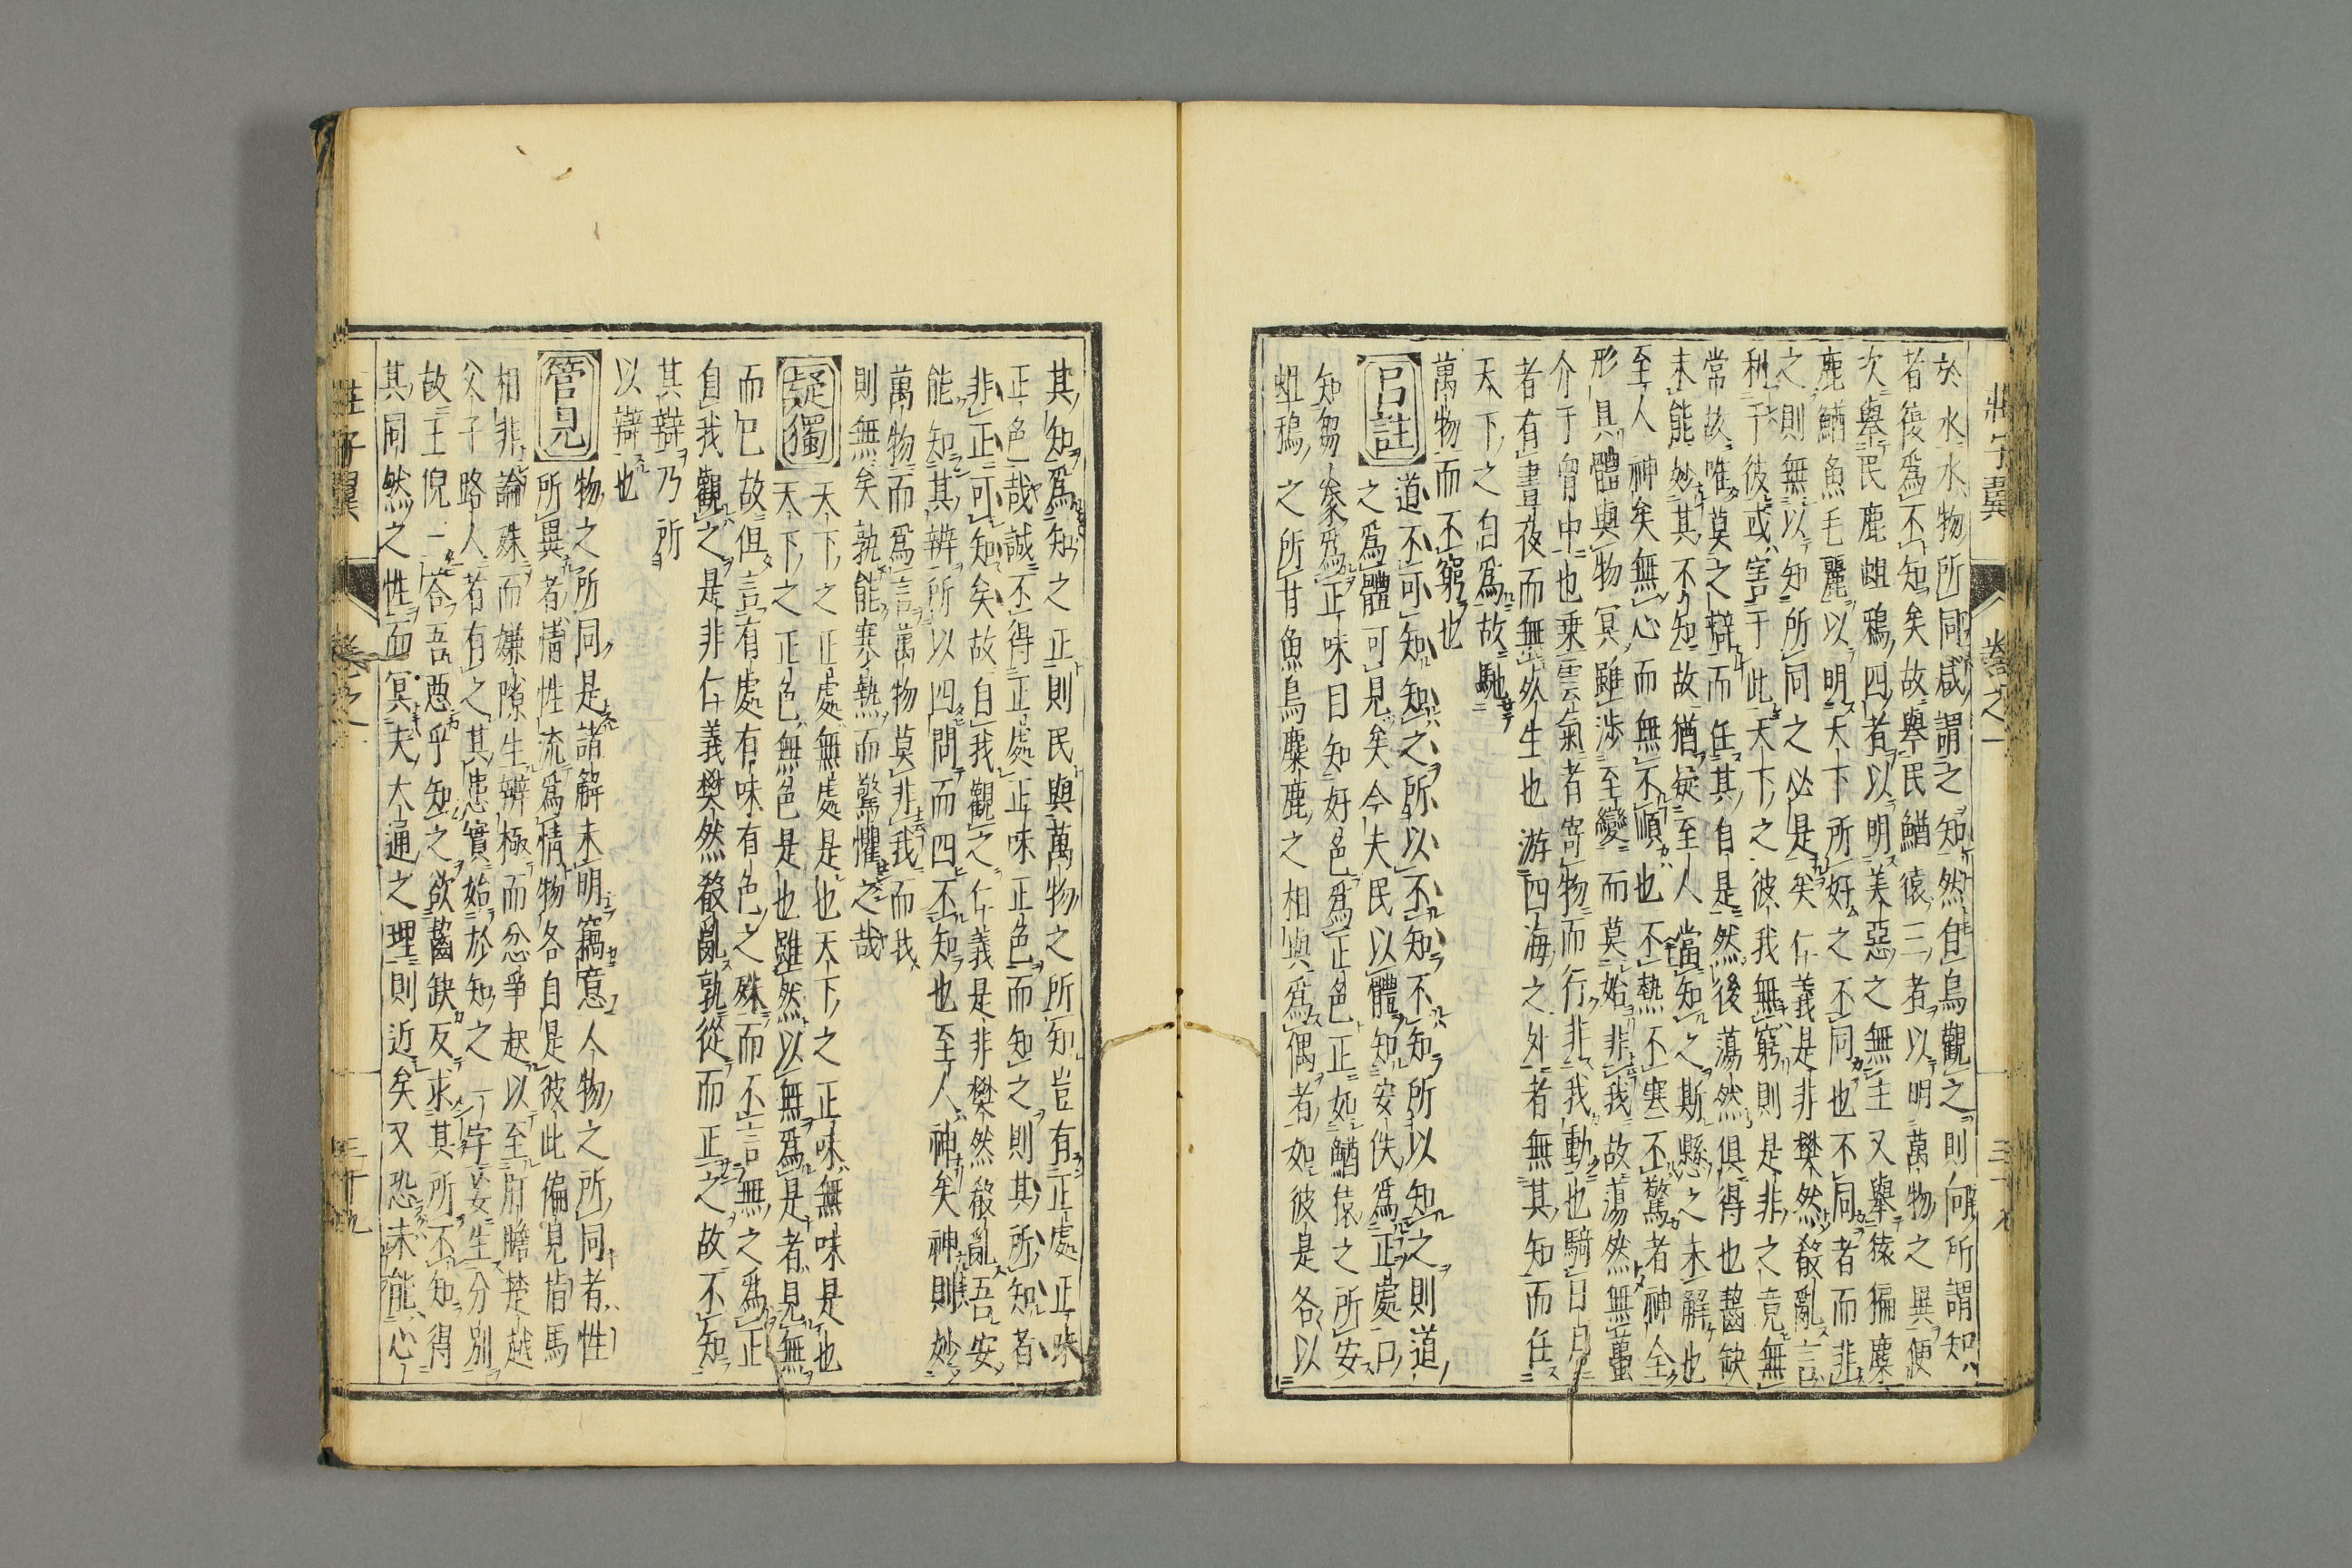 莊子翼 卷之一 三十八
於水水物所同咸謂之知然自鳥觀之則向所謂知
者復爲不知矣故擧民鰌猨三者以明萬物之異便
次擧民鹿蛆鴉四者以明美惡之無主又擧猿猵麋
鹿鰌魚毛麗以明天下所好之不同也不同者而非
之則無以知所同之必是矣仁義是非樊然殽亂言
利于彼或害于此天下之彼我無窮則是非之竟無
常故唯莫之辯而任其自是然後蕩然俱得也齧缺
未能妙其不知故猶疑至人當知之斯懸之未解也
至人神矣無心而無不順也不熱不寒不驚者神全
形具體與物冥雖渉至變而莫始非我故蕩然無蠆
介于胷中也乗雲氣者寄物而行非我動也騎日月
者有晝夜而無死生也游四海之外者無其知而任
天下之自爲故馳
萬物而不窮也
呂註 道不可知知之所以不知不知所以知之則道
之爲體可見矣今夫民以體知安佚爲正處口
知芻豢爲正味目知好色爲正色正如鰌猿之所安
蛆鴉之所甘魚鳥麋鹿之相與爲偶者如彼是各以
其知爲知之正則民與萬物之所知豈有正處正味
正色哉誠不得正處正味正色而知之則其所知者
非正可知矣故自我觀之仁義是非樊然殽亂吾安
能知其辨所以四問而四不知也至人神矣神則妙
萬物而爲言萬物莫非我而我
則無矣孰能寒熱而驚懼之哉
疑獨 天下之正處無處是也天下之正味無味是也
天下之正色無色是也雖然以無爲是者見無
而巳故但言有處有味有色之殊而不言無之爲正
自我觀之是非仁義樊然殽亂孰從而正之故不知
其辯乃所
以辯也
管見 物之所同是諸解未明竊意人物之所同者性
所異者情性流爲情物各自是彼此偏見指馬
相非論殊而嫌隙生辨極而忿爭起以至肝膽楚越
父子路人者有之其患實始於知之一字妄生分別
故王倪一答吾惡乎知之欲齧缺反求其所不知得
其同然之性而冥夫大通之理則近矣又恐未能心
莊子翼 卷之一 三十九